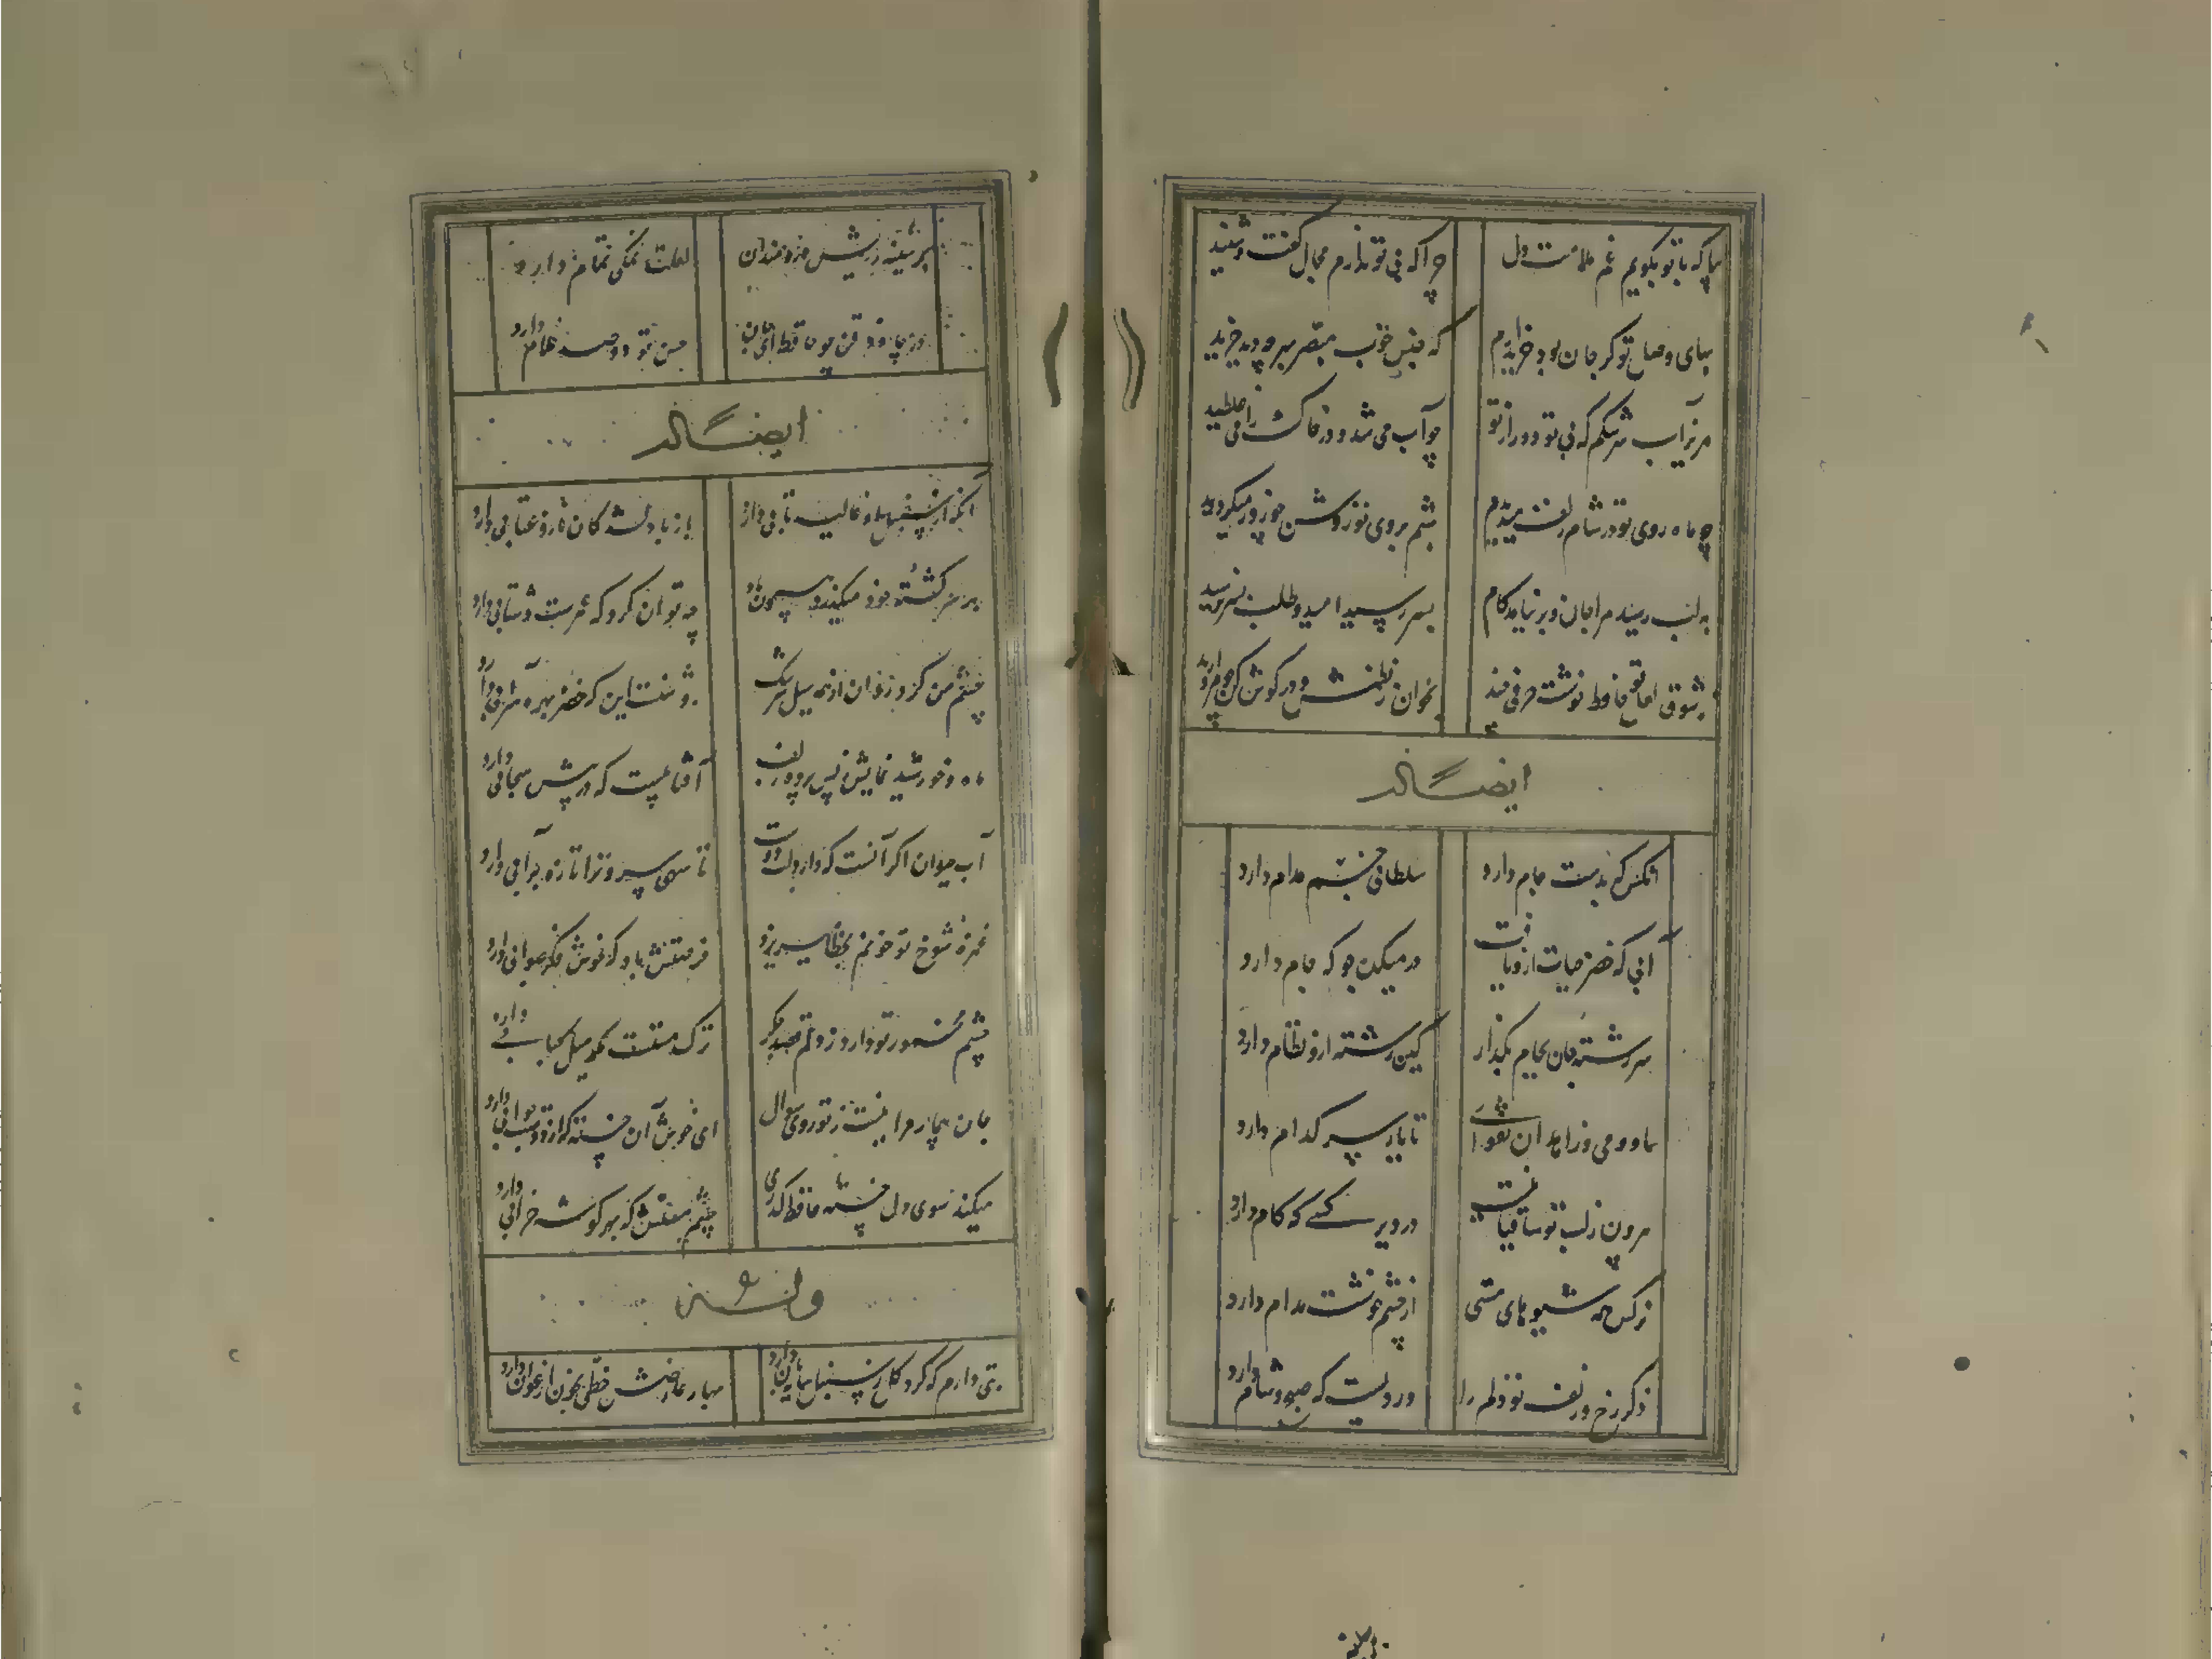 بیا که با تو بگویم غم ملامت دل
چرا که بی تو ندارم مجال گفت و شنید
بهای وصل تو گر جان بود خریدارم
که جنس خوب مبصر بهر چه دید خرید
مریز آب سرشکم که بی تو دور از تو
چو آب می شد و در خاک راه می غلطید
چو ماه روی تو در شام زلف میدیدم
شبم بروی تو روشن چو روز میگردید
به لب رسید مرا جان و برنیامد کام
بسر رسید امید و طلب بسر نرسید
ز شوق لعل تو حافظ نوشت حرفی چند
بخوان ز نظمش و در گوش کن چو مروارید
ایضاً له
آنکس که بدست جام دارد
سلطانی جم مدام دارد
آبی که خضر حیات ازو یافت
در میکده جو که جام دارد
سررشته جان بجام بگذار
کین رشته ازو نظام دارد
ما و می و زاهدان و تقوا
تا یار سر کدام دارد
بیرون ز لب تو ساقیا نیست
در دور کسی که کام دارد
نرگس همه شیوهای مستی
از چشم خوشت مدام دارد
ذکر رخ و زلف تو دلم را
وردیست که صبح و شام دارد
بر سینه ریش دردمندان
لعلت نمکی تمام دارد
در چاه ذقن چو حافظ ای جان
حسن تو دو صد غلام دارد
ایضاً له
آنکه از سنبل او غالیه تابی دارد
باز با دلشدگان ناز و عتابی دارد
بر سر کشته خود میگذرد همچون باد
چه توان کرد که عمرست و شتابی دارد
چشم من کرد روان از مژه سیل سرشک
ماه خورشید نمایش ز پس پرده زلف
آفتابیست که در پیش سحابی دارد
آب حیوان اگر آنست که دارد لب دوست
روشنست این که خضر بهره سرابی دارد
تا سهی سرو ترا تازه بر آبی دارد
غمزه شوخ تو خونم بخطا میریزد
فرصتش باد که خوش فکر صوابی دارد
چشم مخمور تو دارد ز دلم قصد جگر
ترک مستست مگر میل کبابی دارد
جان بیمار مرا نیست ز تو روی سوال
ای خوش آن خسته که از دوست جوابی دارد
میکند سوی دل خسته حافظ گذری
چشم مستش که بهر گوشه خرابی دارد
وله
بتی دارم که گرد گل ز سنبل سایبان دارد
بهار عارضش خطی بخون ارغوان دارد